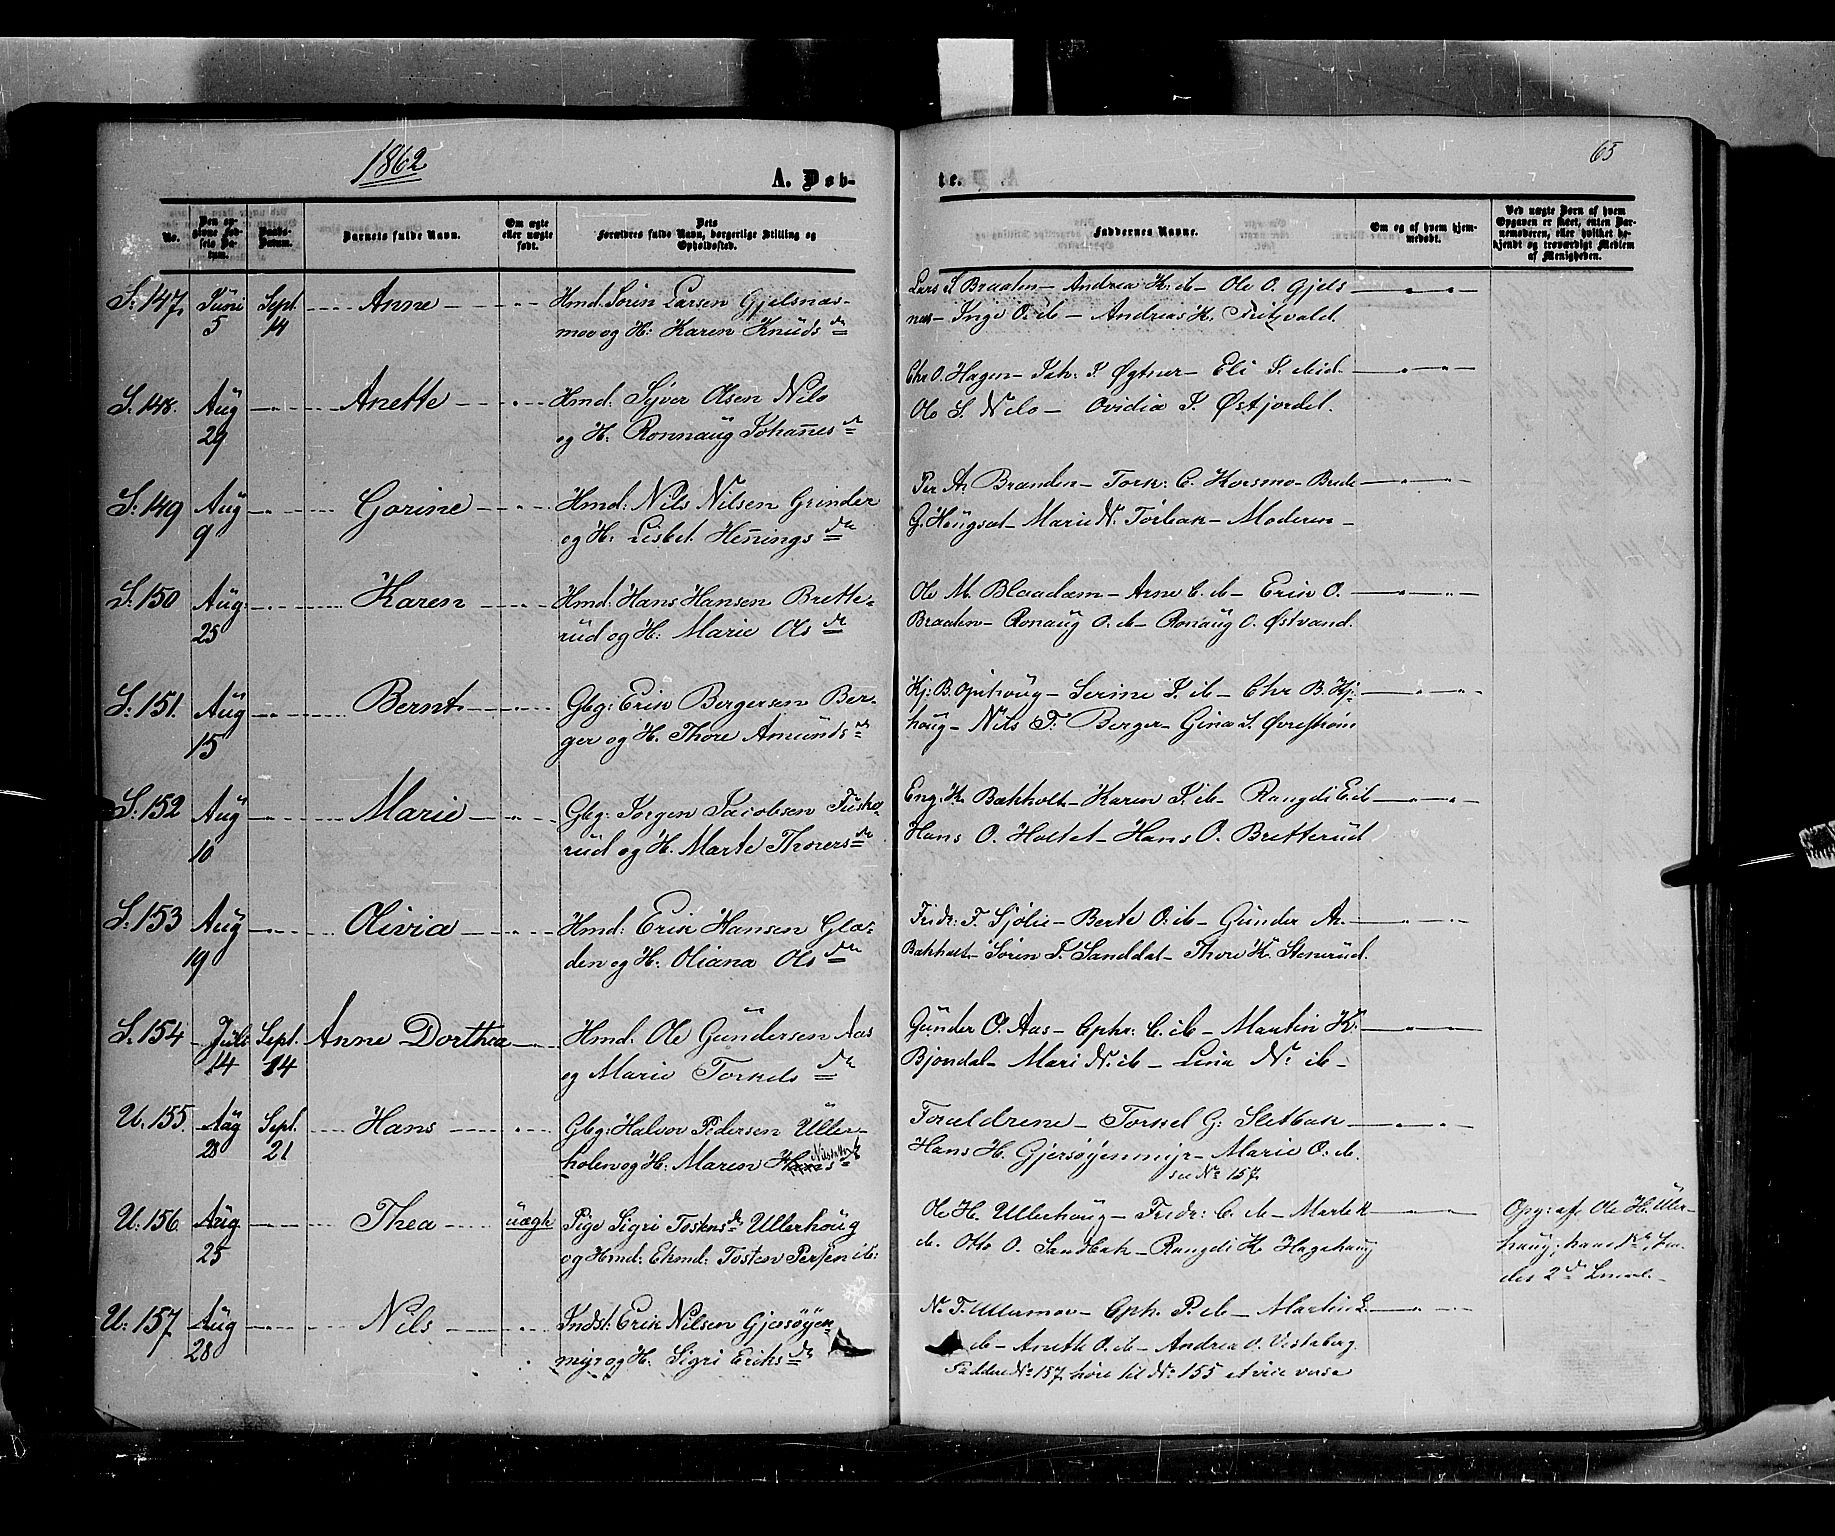 1862
A. Døb-
te.
65
No.
Den an-
givne Fød-
sels Da-
tum.
Daabs-
Datum.
Barnets fulde Navn.
Om ægte
eller uægte
født.
Dets
Forældres fulde Navn, borgerlige Stilling og
Opholdssted.
Faddernes Navne.
Om og af hvem hjem-
medøbt.
Ved uægte Børn af hvem
Opgaven er skeet, enten Bar-
nemoderen, eller hvilket be-
kjendt og troværdigt Medlem
af Menigheden.
S. 147 Juni 5 Sept. 14 Anne
Hmd. Sörin Larsen Gjelsnæs-
moe og H: Karen Knuds dr
Lars S Braaten - Andrea K. ib - Ole O. Gjels
næs - Inge O. ib - Andreas K.
S. 148. Aug 29 Anette
Hmd: Syver Olsen Nilo
og H: Ronnaug Johannes dr
Chr O. Hagen - Joh: Øgtner - Eli S. ibid.
Ole S. Nilo - Ovidia Østjordet.
S: 149 Aug 9 Gorine
Hmd: Nils Nilsen Grinder
og H: Lisbet Hennings dr
Per A. Branden - Tork: C. Korsmo -
G. Haugsæt - Marie N. Torbak - Moderen -
S. 150 Aug: 25 Karen
Hmd: Hans Hansen Brette-
rud og H: Marie Ols dr
Ole M. Blaadam - Arne C. ib - Erik O.
Braaten - Ronaug O. ib - Ronaug O. Østvand.
S. 151. Aug 15 Bernt
Gbg: Erik Bergersen Ber-
ger og H. Thore Amunds dr
Serine ib - Chr B. Kj-
houg - Nils T. Berger - Gina
S. 152 Aug 10 Marie
Gbg: Jörgen Jacobsen
rud og H. Marte Thorers dr
Eng: K. Bakholt - Karen ib - Rangdi E. ib
Hans O. Holtet - Hans O. Bretterud
S. 153 Aug 19 Olivia
Hmd: Erik Hansen Glo-
den og H. Oliana Ols dr
Fredr: F. Sjölie - Berte O. ib - Gunder A.
Bakholt - Sörin Sanddal - Thore K. Stenrud.
S. 154 Juli 14 Sept. 14 Anne Dorthea
Hmd. Ole Gundersen Aas
og Marie Torkels dr
Gunder O. Aas - Ephr: C. ib - Martin K.
Bjöndal - Mari N. ib - Lina N. ib -
U. 155. Aug 28 Sept. 21 Hans
Gbg: Halvor Pedersen Uller-
holen og H: Maren Hans
Forældrene - Torkel G: Sletbak
Hans H. Gjersøyenmyr - Marie O. ib.
see No 157.
U. 156 Aug 25 Thea uægte
Pige Sigri Tostens dr Ullerhoug
og Hmd: Ekmd: Tosten Persen ib:
Ole H. Ullerhoug - Fredr: C. ib - Marte K
ib. Otto O. Sandbak - Rangdi K. Hagahaug
Opg: af Ole H. Uller-
haug;
U. 157 Aug 28 Nils
Indst: Erik Nilsen Gjersøyen-
myr og H. Sigri Eriks dr
N. T. Ullermoe - Eph. P. ib - Martin L.
ib - Anette O. ib - Andrea O. Vestaberg
Faddere No 157 höre til No 155 et vice versa